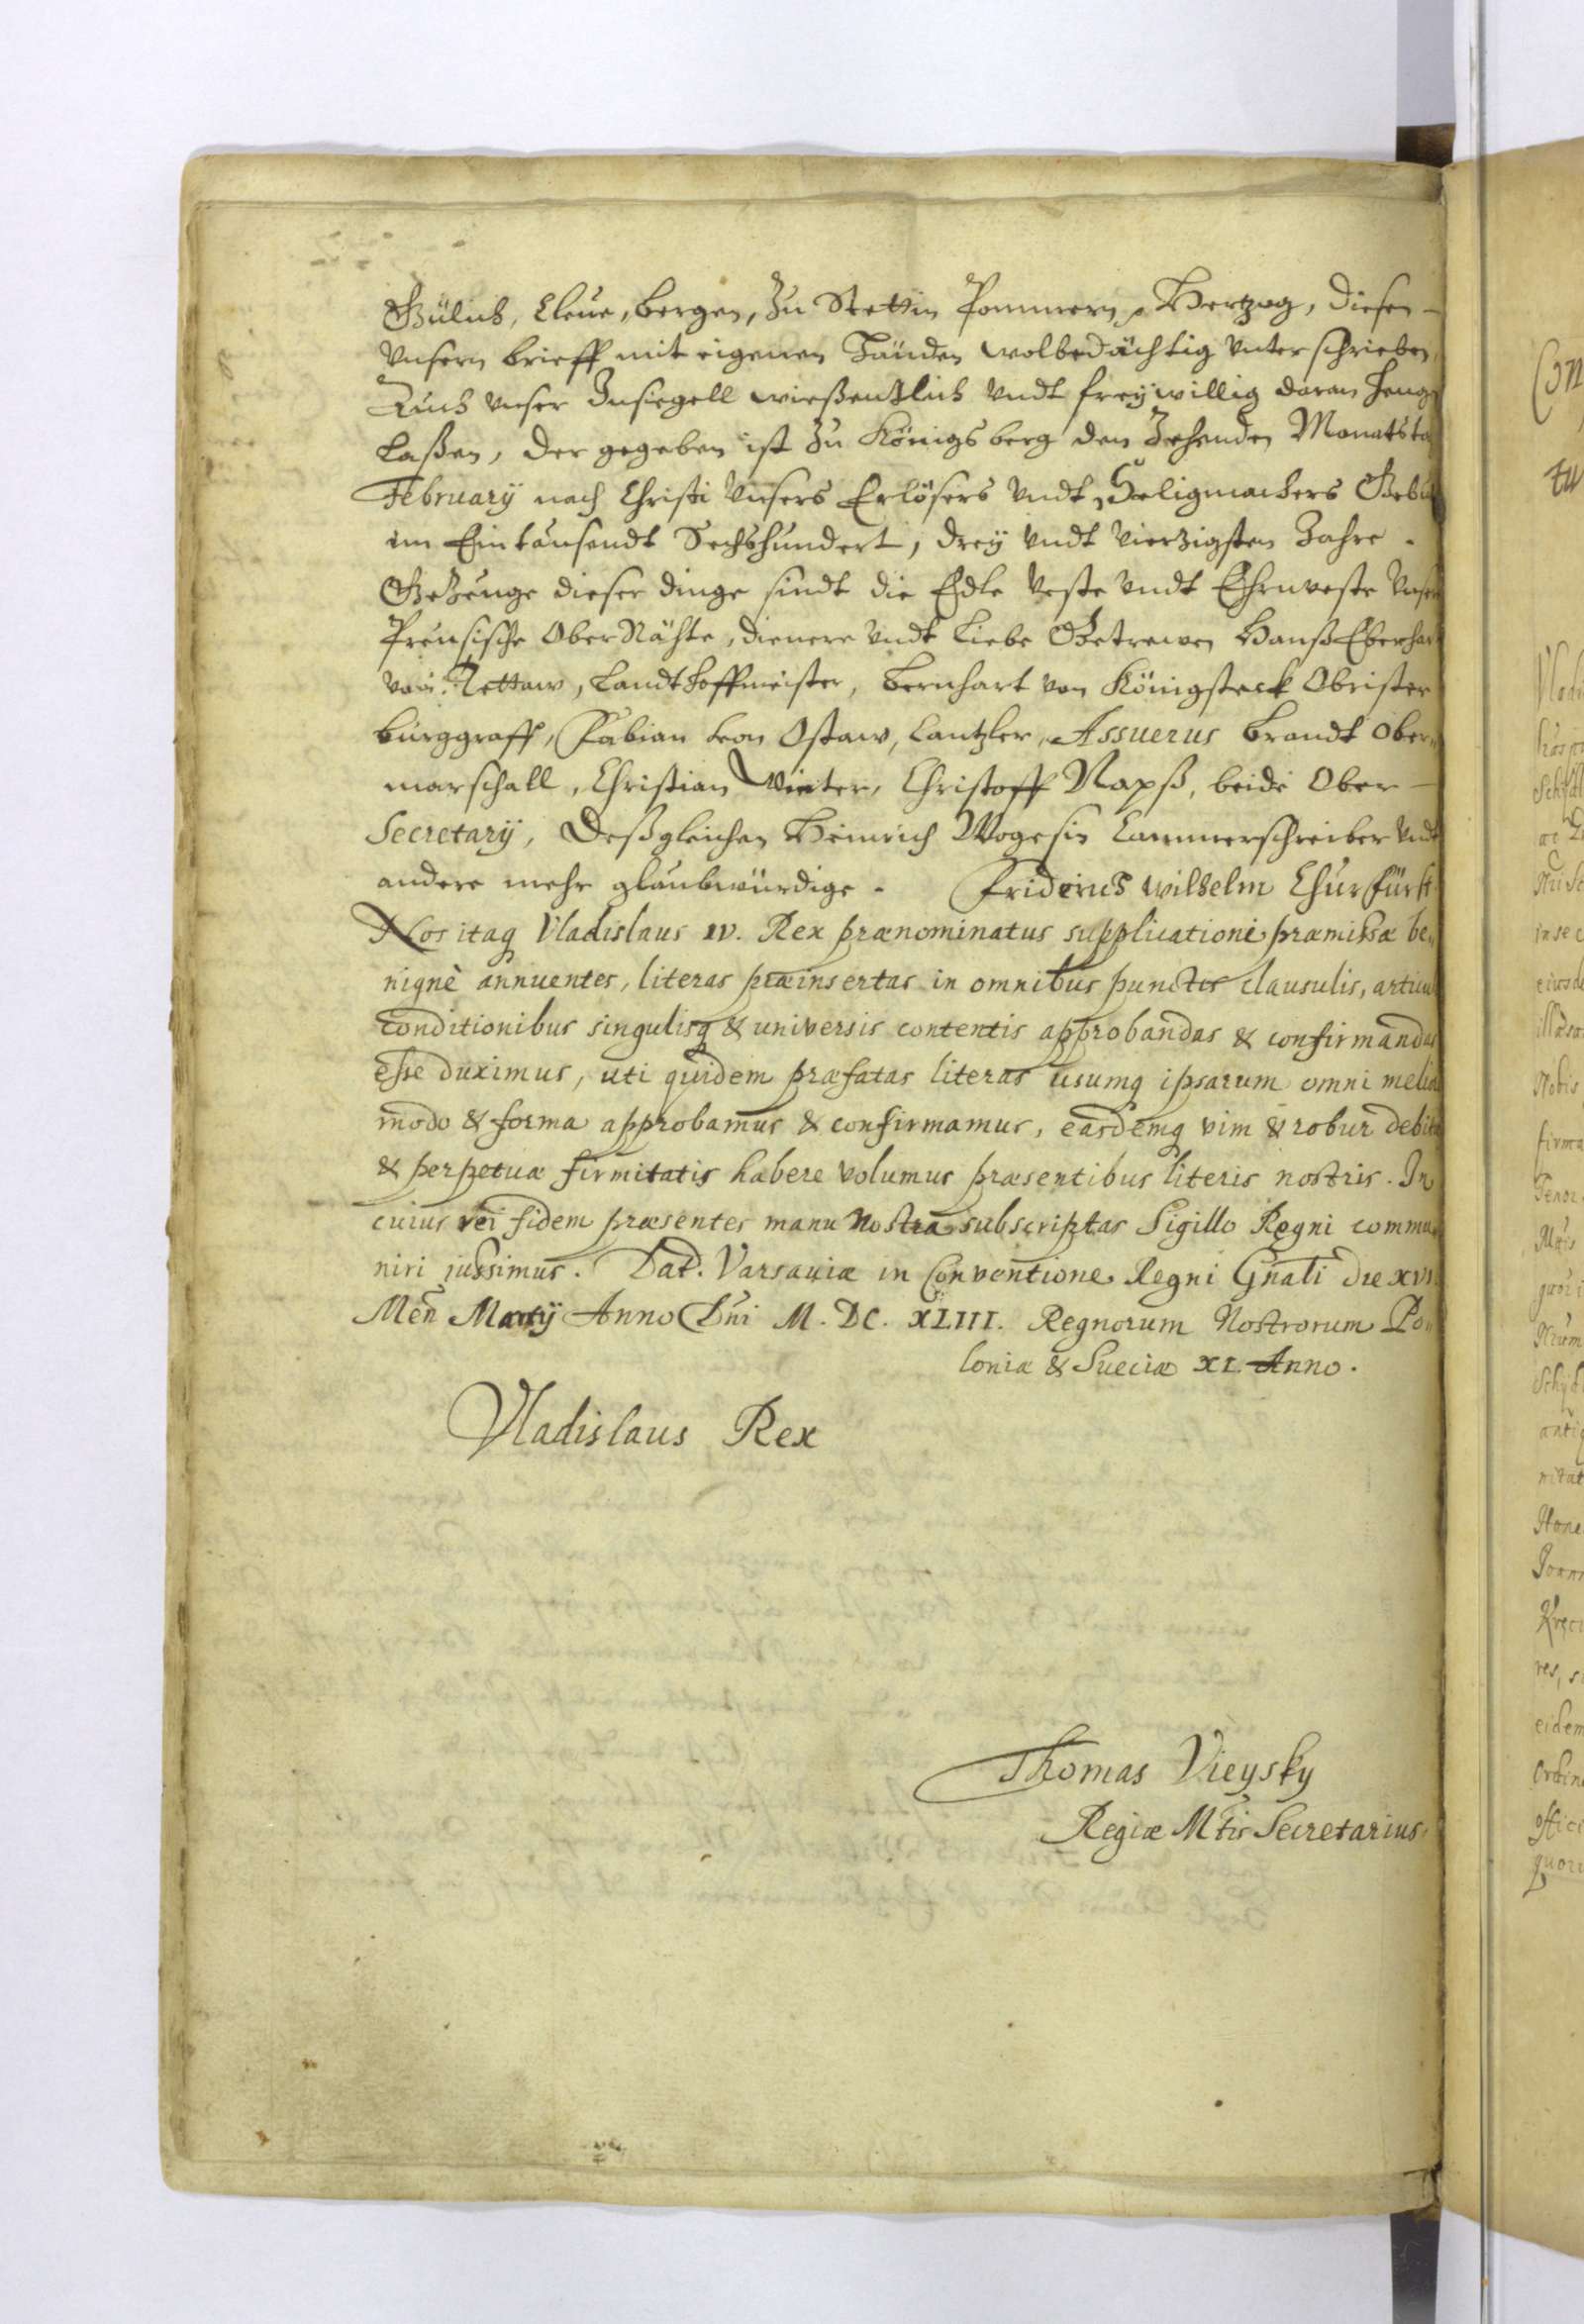 Gülich, Cleue, Bergen, Zu Stettin Pommern ꝛ Hertzog, diesen
Vnsern brieff mit eigenen Händen wolbedächtig Vnterschrieben,
Auch Vnser Insiegell wießentlich Vndt freÿwillig daran heng
Laßen, der gegeben ist Zu Königsberg den Zehenden Monatsta
Februarÿ nach Christi Vnsers Erlösers Vndt Seligmachers Gebu
im Eintausendt Sechshundert, dreÿ Vndt Vierzigsten Jahre.
GeZeuge dieser dinge sindt die Edle Veste Vndt Ehrnveste Vnse
Preusische Ober Rähte, dienere Vndt Liebe Getrewen Hanß Eberhar
von Tettaw, Landthoffmeister, Bernhart von Königsteck Obrister
Burggraff, Fabian von Ostaw, Cantzler, Assuerus Brandt Ober
marschall, Christian Winter, Christoff Rapß, beide Ober
Secretarÿ, Deßgleichen Heinrich Wogesin Cammerschreiber Vndt
andere mehr glaubwürdige. Fridrich Wilhelm Churfürst
Nos itaq Vladislaus IV. Rex prænominatus supplicationi præmissæ be
nignè annuentes, literas præinsertas in omnibus punctis clausulis, articu
conditionibus singulisq & universis contentis approbandas & confirmandas
esse duximus, uti quidem præfatas literas usumq ipsarum omni melio
modo & forma approbamus & confirmamus, easdemq vim & robur debita
& perpetuæ firmitatis habere volumus præsentibus literis nostris. In
cuius rei fidem præsentes manu Nostra subscriptas Sigillo Regni commu
niri jussimus. Dat. Varsaviæ in Conventione Regni Gnali Die XVI
Men Martÿ Anno Dni M. DC. XLIII. Regnorum Nostrorum Po
loniæ & Sueciæ XI. Anno.
Vladislaus Rex
Thomas Vieysky
Regiæ Mtis Secretarius